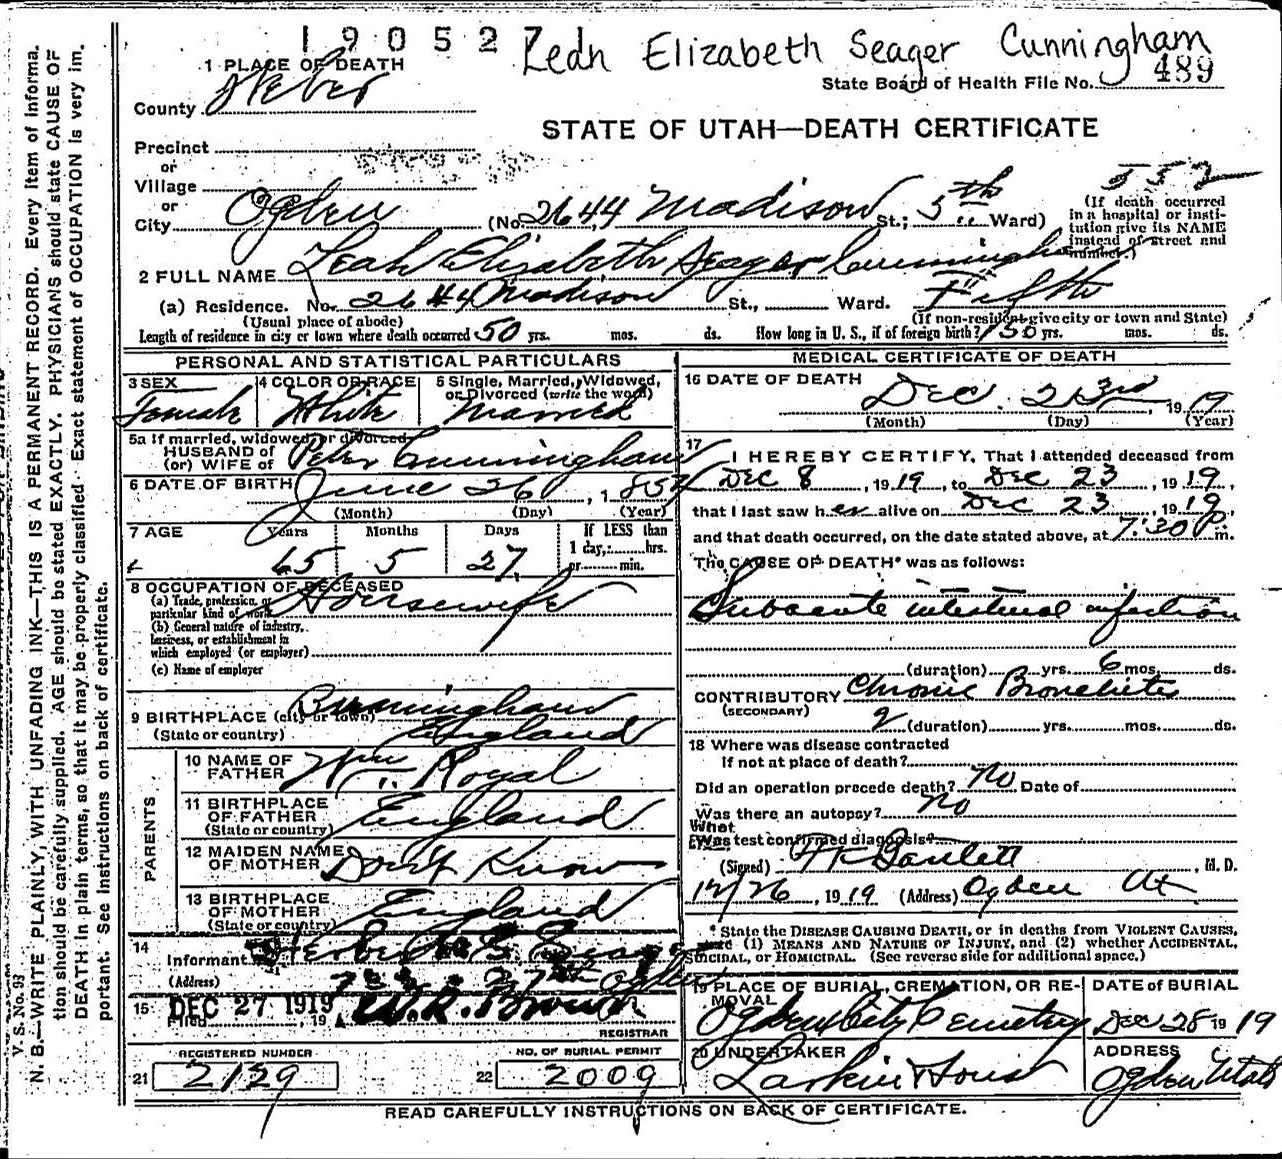 190527 Leah Elizabeth Seager Cunningham
1 PLACE OF DEATH
State Board of Health File No. 489
County Weber
STATE OF UTAH—DEATH CERTIFICATE
Precinct
or
Village
or
City Ogden (No. 2644 Madison St.; 5th Ward)
552
(If death occurred
in a hospital or insti-
tution give its NAME
instead of street and
number.)
2 FULL NAME Leah Elizabeth Seager Cunningham
(a) Residence. No. 2644 Madison St., Ward. Fifth
(Usual place of abode) (If non-resident give city or town and State)
Length of residence in city or town where death occurred 50 yrs. mos. ds. How long in U. S., if of foreign birth? 50 yrs. mos. ds.
PERSONAL AND STATISTICAL PARTICULARS
3 SEX
Female
4 COLOR OR RACE
White
5 Single, Married, Widowed,
or Divorced (write the word)
Married
5a If married, widowed, or divorced
HUSBAND of
(or) WIFE of Peter Cunningham
6 DATE OF BIRTH June 26, 1854
(Month) (Day) (Year)
7 AGE Years Months Days If LESS than
65 5 27 1 day, hrs.
or min.
8 OCCUPATION OF DECEASED
(a) Trade, profession, or
particular kind of work Housewife
(b) General nature of industry,
business, or establishment in
which employed (or employer)
(c) Name of employer
9 BIRTHPLACE (city or town) Birmingham
(State or country) England
PARENTS
10 NAME OF
FATHER Wm. Royal
11 BIRTHPLACE
OF FATHER England
(State or country)
12 MAIDEN NAME
OF MOTHER Don't Know
13 BIRTHPLACE
OF MOTHER England
(State or country)
14
Informant Herbert
(Address)
15 DEC 27 1919
Filed , 19
REGISTRAR
REGISTERED NUMBER NO. OF BURIAL PERMIT
21 2129 22 2009
MEDICAL CERTIFICATE OF DEATH
16 DATE OF DEATH Dec. 23rd, 1919
(Month) (Day) (Year)
17
I HEREBY CERTIFY, That I attended deceased from
Dec 8, 1919, to Dec 23, 1919,
that I last saw her alive on Dec 23, 1919,
and that death occurred, on the date stated above, at 7:30 P m.
The CAUSE OF DEATH* was as follows:
Subacute intestinal infection
(duration) yrs. 6 mos. ds.
CONTRIBUTORY Chronic Bronchitis
(SECONDARY)
2 (duration) yrs. mos. ds.
18 Where was disease contracted
if not at place of death?
Did an operation precede death? No Date of
Was there an autopsy? No
What
test confirmed diagnosis?
(Signed) Bartlett, M. D.
12/26, 1919 (Address) Ogden Ut
* State the DISEASE CAUSING DEATH, or in deaths from VIOLENT CAUSES,
state (1) MEANS AND NATURE OF INJURY, and (2) whether ACCIDENTAL,
SUICIDAL, or HOMICIDAL. (See reverse side for additional space.)
19 PLACE OF BURIAL, CREMATION, OR RE-
MOVAL
Ogden City Cemetery
DATE of BURIAL
Dec 28 1919
20 UNDERTAKER
Larkin & Sons
ADDRESS
Ogden Utah
READ CAREFULLY INSTRUCTIONS ON BACK OF CERTIFICATE.
V. S. No. 93
N. B.—WRITE PLAINLY, WITH UNFADING INK—THIS IS A PERMANENT RECORD. Every item of informa-
tion should be carefully supplied. AGE should be stated EXACTLY. PHYSICIANS should state CAUSE OF
DEATH in plain terms, so that it may be properly classified. Exact statement of OCCUPATION is very im-
portant. See instructions on back of certificate.